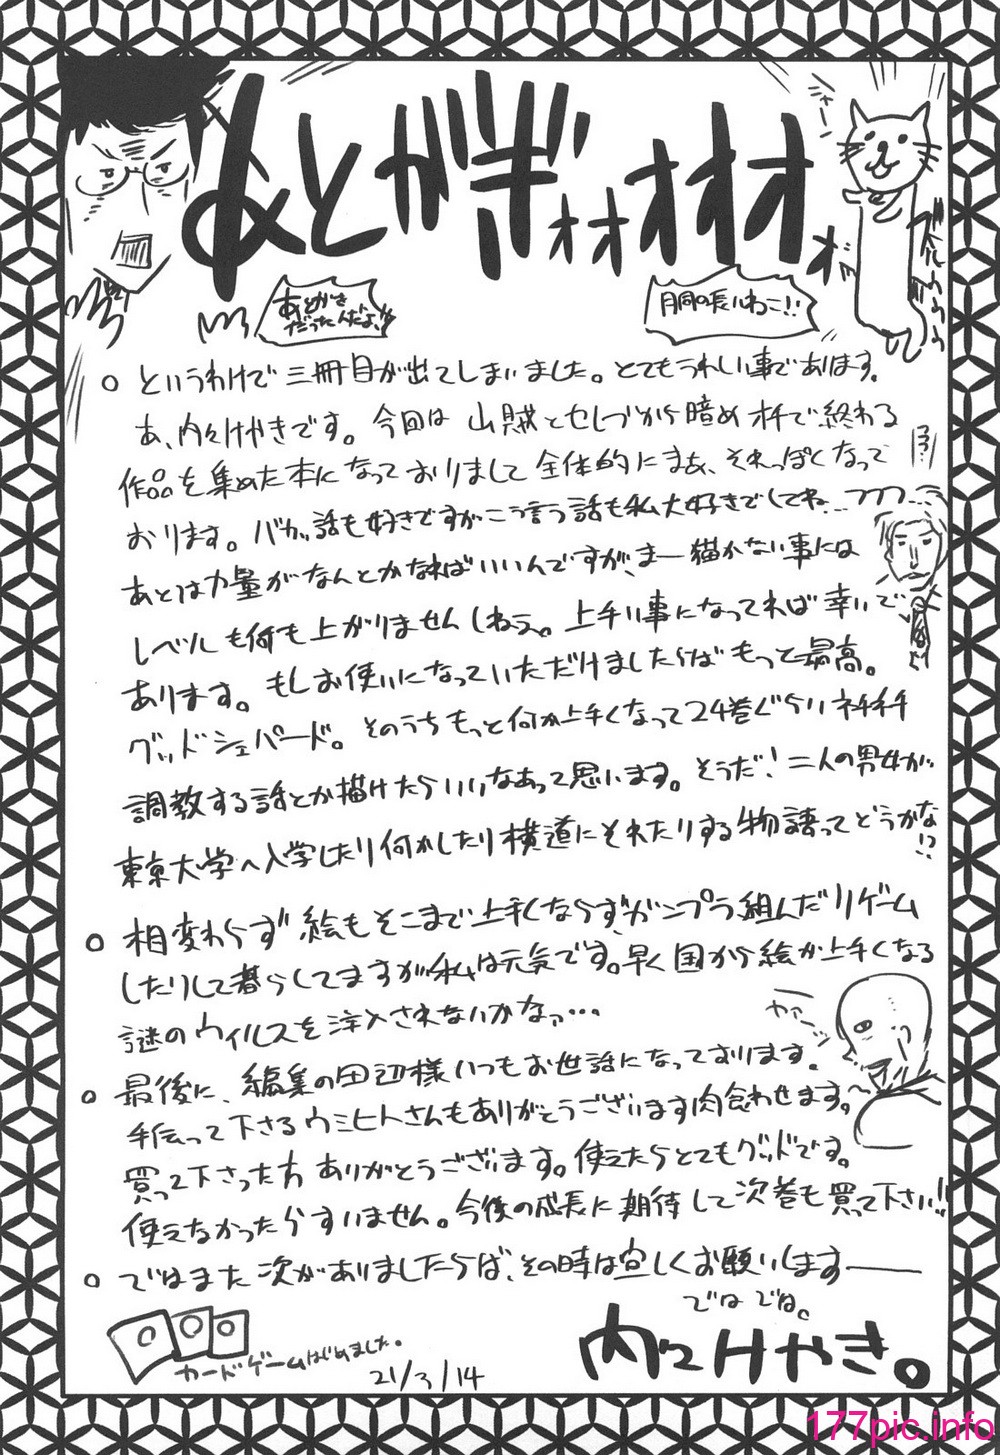 あとがきォォオオオォッ
あとがき
だったんだよ!!
胴の長いねこ!!
○というわけで三冊目が出てしまいました。とてもうれしい事であります。
あ、内々けやきです。今回は山賊とセレブから暗めオチで終わる
作品を集めた本になっておりまして全体的にまぁ、それっぽくなって
おります。バカッ話も好きですがこう言う話も私大好きでしてね…
あとは力量がなんとかなればいいんですが、まー描かない事には
レベルも何も上がりませんしねぇ。上手い事になってれば幸いで
あります。もしお使いになっていただけましたらばもっと最高。
グッドシェパード。そのうちもっと何か上手くなって24巻ぐらいネチネチ
調教する話とか描けたらいいなあって思います。そうだ!二人の男女が
東京大学へ入学したり何かしたり横道にそれたりする物語ってどうかな!?
○相変わらず絵もそこまで上手くならず、ガンプラ組んだりゲーム
したりして暮らしてますが私は元気です。早く国から絵が上手くなる
謎のウィルスを注入されないかなァ…
カァーッ
○最後に、編集の田辺様いつもお世話になっております。
手伝って下さるウミヒトさんもありがとうございます肉食わせます。
買って下さった方ありがとうございます。使えたらとてもグッドです。
使えなかったらすいません。今後の成長に期待して次巻も買って下さい!!
○ではまた次がありましたらば、その時は宜しくお願いします——
ではでは。
カードゲームはじめました。
21/3/14
内々けやき。
177pic.info